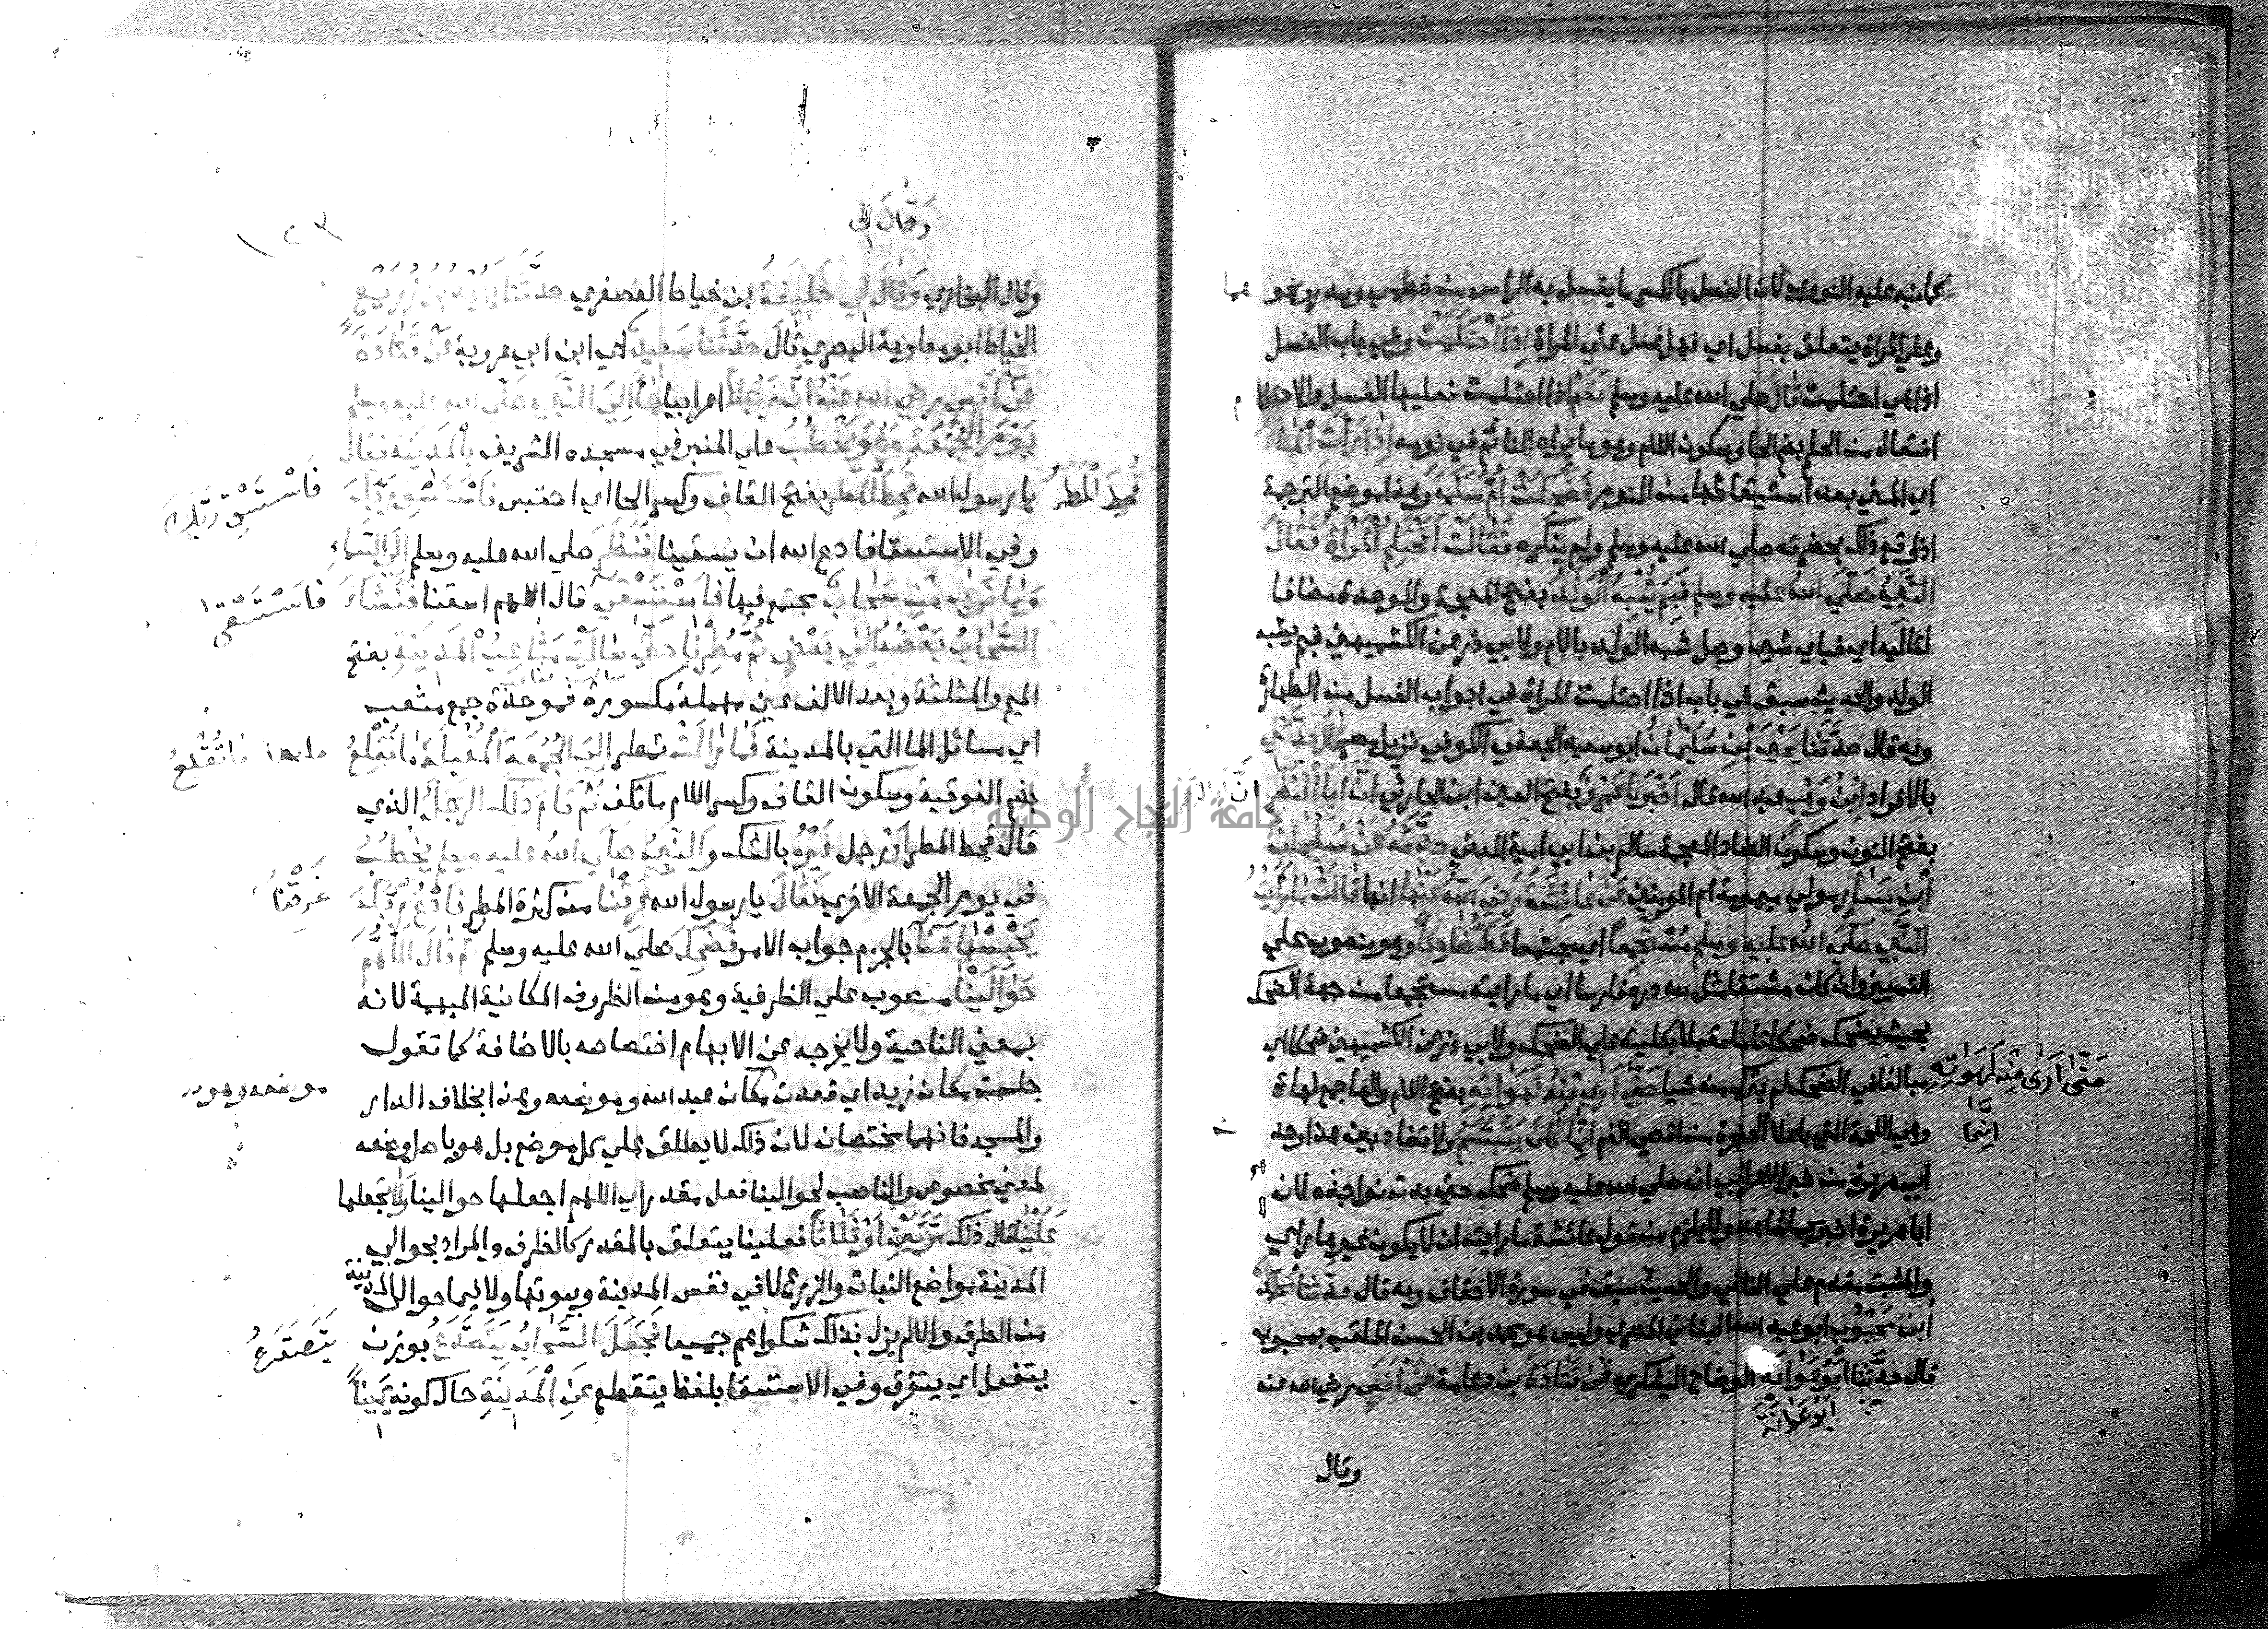 كما نبه عليه النووي لان الغسل بالكسر ما يغسل به الراس من خطمي وسدر ونحو
وعلى المراة يتعلق بغسل اي فهل غسل على المراة إِذَا احْتَلَمَتْ وفي باب الغسل
اذا هي احتلمت قال صلي الله عليه وسلم نَعَمْ اذا احتلمت فعليها الغسل والاحتلام
افتعال من الحلم بضم الحا وسكون اللام وهو ما يراه النائم في نومه إِذَا رَأَتِ الْمَاءَ
اي المني بعد استيقاظها من النوم فَضَحِكَتْ أُمُّ سَلَمَةَ وهذا موضع الترجمة
اذ وقع ذلك بحضرته صلي الله عليه وسلم ولم ينكره فَقَالَتْ أَتَحْتَلِمُ الْمَرْأَةُ فَقَالَ
النَّبِيُّ صَلَّى اللهُ عليه وسلم فَبِمَ شَبَهُ الْوَلَدِ بفتح المعجمة والموحدة مضافا
لتاليه اي فباي شي وصل شبه الولد بالام ولابي ذر عن الكشميهني فبم يشبه
الولد والحديث سبق في باب اذا احتلمت المراة في ابواب الغسل من الطهارة
وبه قال حَدَّثَنَا يَحْيَى بْنُ سُلَيْمَانَ ابو سعيد الجعفي الكوفي نزيل مصر قَالَ حَدَّثَنِي
بالافراد ابْنُ وَهْبٍ عبد الله قال أَخْبَرَنَا عَمْرٌو بفتح العين ابن الحارث أَنَّ أَبَا النَّضْرِ
بفتح النون وسكون الضاد المعجمة سالم بن ابي امية المدني حدثه عَنْ سُلَيْمَانَ
ابن يَسَار مولي ميمونة ام المومنين عَنْ عَائِشَةَ رَضِيَ اللهُ عَنْهَا انها قَالَتْ مَا رَأَيْتُ
النَّبِيَّ صَلَّى اللهُ عليه وسلم مُسْتَجْمِعاً اي مجتمعا قَطُّ ضَاحِكاً وهو منصوب علي
التمييز وان كان مشتقا مثل لله دره فارسا اي ما رايته مستجمعا من جهة الضحك
بحيث يضحك ضحكا تاما مقبلا بكليته علي الضحك ولابي ذر عن الكشميهني ضحكا اي
مبالغا في الضحك لم يترك منه شيا حَتَّى أَرَى مِنْهُ لَهَوَاتِهِ بفتح اللام والها جمع لهاة
حَتَّى أَرَى مِنْهُ لَهَوَاتِهِ
وهي اللحمة التي باعلا الحنجرة من اقصي الفم إِنَّمَا كَانَ يَتَبَسَّمُ ولا تضاد بين هذا وحديث
إِنَّمَا
ابي هريرة من خبر الاعرابي انه صلي الله عليه وسلم ضحك حتي بدت نواجذه لان
ابا هريرة اخبر بما شاهده ولا يلزم من قول عائشة ما رايته ان لا يكون غيرها راي
والمثبت مقدم علي النافي والحديث سبق في سورة الاحقاف وبه قال حَدَّثَنَا مُحَمَّدُ
ابْنُ مَحْبُوبٍ ابو عبد الله البناني البصري وليس هو محمد بن الحسن الملقب بمحبوب
قال حَدَّثَنَا أَبُو عَوَانَةَ الوضاح اليشكري عَنْ قَتَادَةَ بن دعامة عَنْ أَنَسٍ رضي الله عنه
أَبُو عَوَانَةَ
وقال
وَقَالَ لِي
١٢٣
وقال البخاري وَقَالَ لِي خَلِيفَةُ بن خياط العصفري حَدَّثَنَا يَزِيدُ بْنُ زُرَيْعٍ
الخياط ابو معاوية البصري قَالَ حَدَّثَنَا سَعِيدٌ هو ابن ابي عروبة عَنْ قَتَادَةَ
عَنْ أَنَسٍ رضي الله عَنْهُ أَنَّ رَجُلاً اعرابيا جَاءَ إِلَى النَّبِيِّ صَلَّى الله عليه وسلم
يَوْمَ الْجُمُعَةِ وَهُوَ يَخْطُبُ علي المنبر في مسجده الشريف بِالْمَدِينَةِ فقال
يا رسول الله قَحَطَ المطر بفتح القاف وكسر الحا اي احتبس فَاسْتَسْقِ رَبَّكَ
قُحِطَ الْمَطَرُ
فَاسْتَسْقِ رَبَّكَ
وفي الاستسقا فادع الله ان يسقينا فَنَظَرَ صلي الله عليه وسلم إِلَى السَّمَاءِ
وَمَا نَرَى مِنْ سَحَابٍ مجتمع فيها فَاسْتَسْقَى قال اللهم اسقنا فَنَشَأَ
فَاسْتَسْقَى
السَّحَابُ بَعْضُهُ إِلَى بَعْضٍ ثُمَّ مُطِرُوا حَتَّى سَالَتْ مَثَاعِبُ الْمَدِينَةِ بفتح
الميم والمثلثة وبعد الالف عين مهملة مكسورة فموحدة جمع مثعب
اي مسائل الما التي بالمدينة فَمَا زَالَتْ تمطر إِلَى الْجُمُعَةِ الْمُقْبِلَةِ مَا تُقْلِعُ
مَا تُقْلِعُ
بضم الفوقية وسكون القاف وكسر اللام ما تكف ثُمَّ قَامَ ذَلِكَ الرَّجُلُ الذي
قال قحط المطر أَوْ رجل غَيْرُهُ بالشك وَالنَّبِيُّ صلي الله عليه وسلم يَخْطُبُ
في يوم الجمعة الاخري فَقَالَ يا رسول الله غَرِقْنَا من كثرة المطر فَادْعُ رَبَّكَ
غَرِقْنَا
يَحْبِسْهَا عَنَّا بالجزم جواب الامر فَضَحِكَ صلي الله عليه وسلم ثُمَّ قَالَ اللَّهُمَّ
حَوَالَيْنَا منصوب علي الظرفية وهو من الظروف المكانية المبهمة لانه
بمعني الناحية ولا يخرجه عن الابهام اختصاصه بالاضافة كما تقول
جلست مكان زيد اي قعدت مكان عبد الله وهو موضعه وهذا بخلاف الدار
والمسجد فانهما مختصان لان ذلك لا يطلق علي كل موضع بل هو باصل وضعه
لمعني مخصوص والناصب لحوالينا فعل مقدر اي اللهم اجعلها حوالينا وَلاَ تجعلها
عَلَيْنَا قال ذلك مَرَّتَيْنِ أَوْ ثَلاَثاً فعلينا يتعلق بالمقدر كالظرف والمراد بحوالي
المدينة مواضع النبات والزرع لا في نفس المدينة وبيوتها ولا فيما حوالي المدينة
من الطرق والا لم يزل بذلك شكواهم جميعا فَجَعَلَ السَّحَابُ يَتَصَدَّعُ بوزن
يَتَصَدَّعُ
يتفعل اي يتفرق وفي الاستسقا بلفظ يتقطع عَنِ الْمَدِينَةِ حال كونه يَمِيناً
جامعة النجاح الوطنية